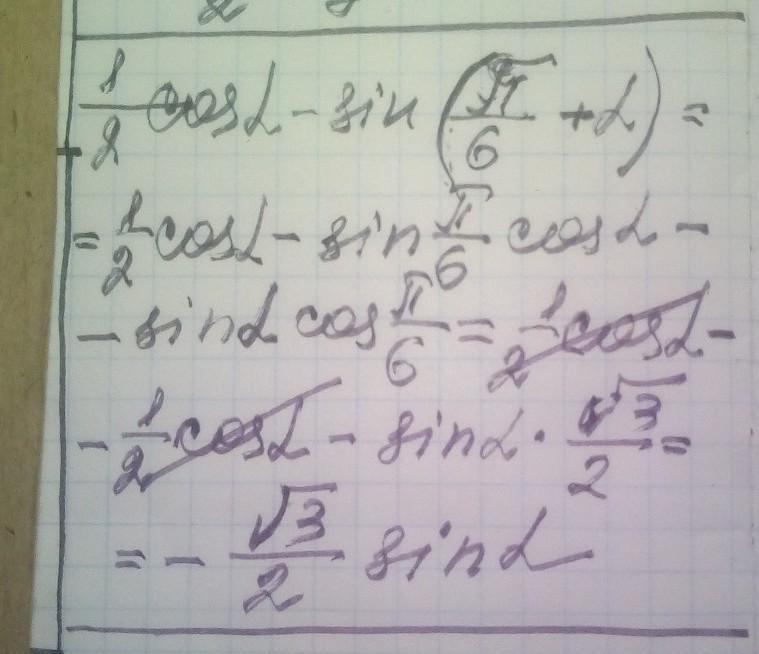 1/2 cosα - sin(π/6 + α) =
= 1/2 cosα - sin π/6 cosα -
- sinα cos π/6 = 1/2 cosα -
- 1/2 cosα - sinα · √3/2 =
= - √3/2 sinα